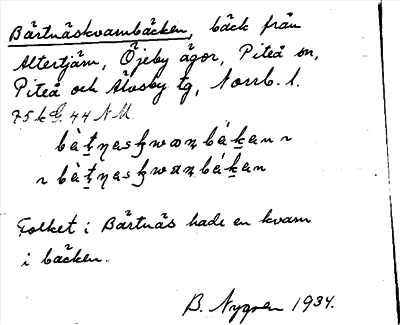 Bärtnäskvarnbäcken, bäck från
Altertjärn, Öjeby ägor, Piteå sn,
Piteå och Älvsby tg, Norrb. l.
75 k G. 44 N M.
Folket i Bärtnäs hade en kvarn
i bäcken.
B. Nygren 1934.